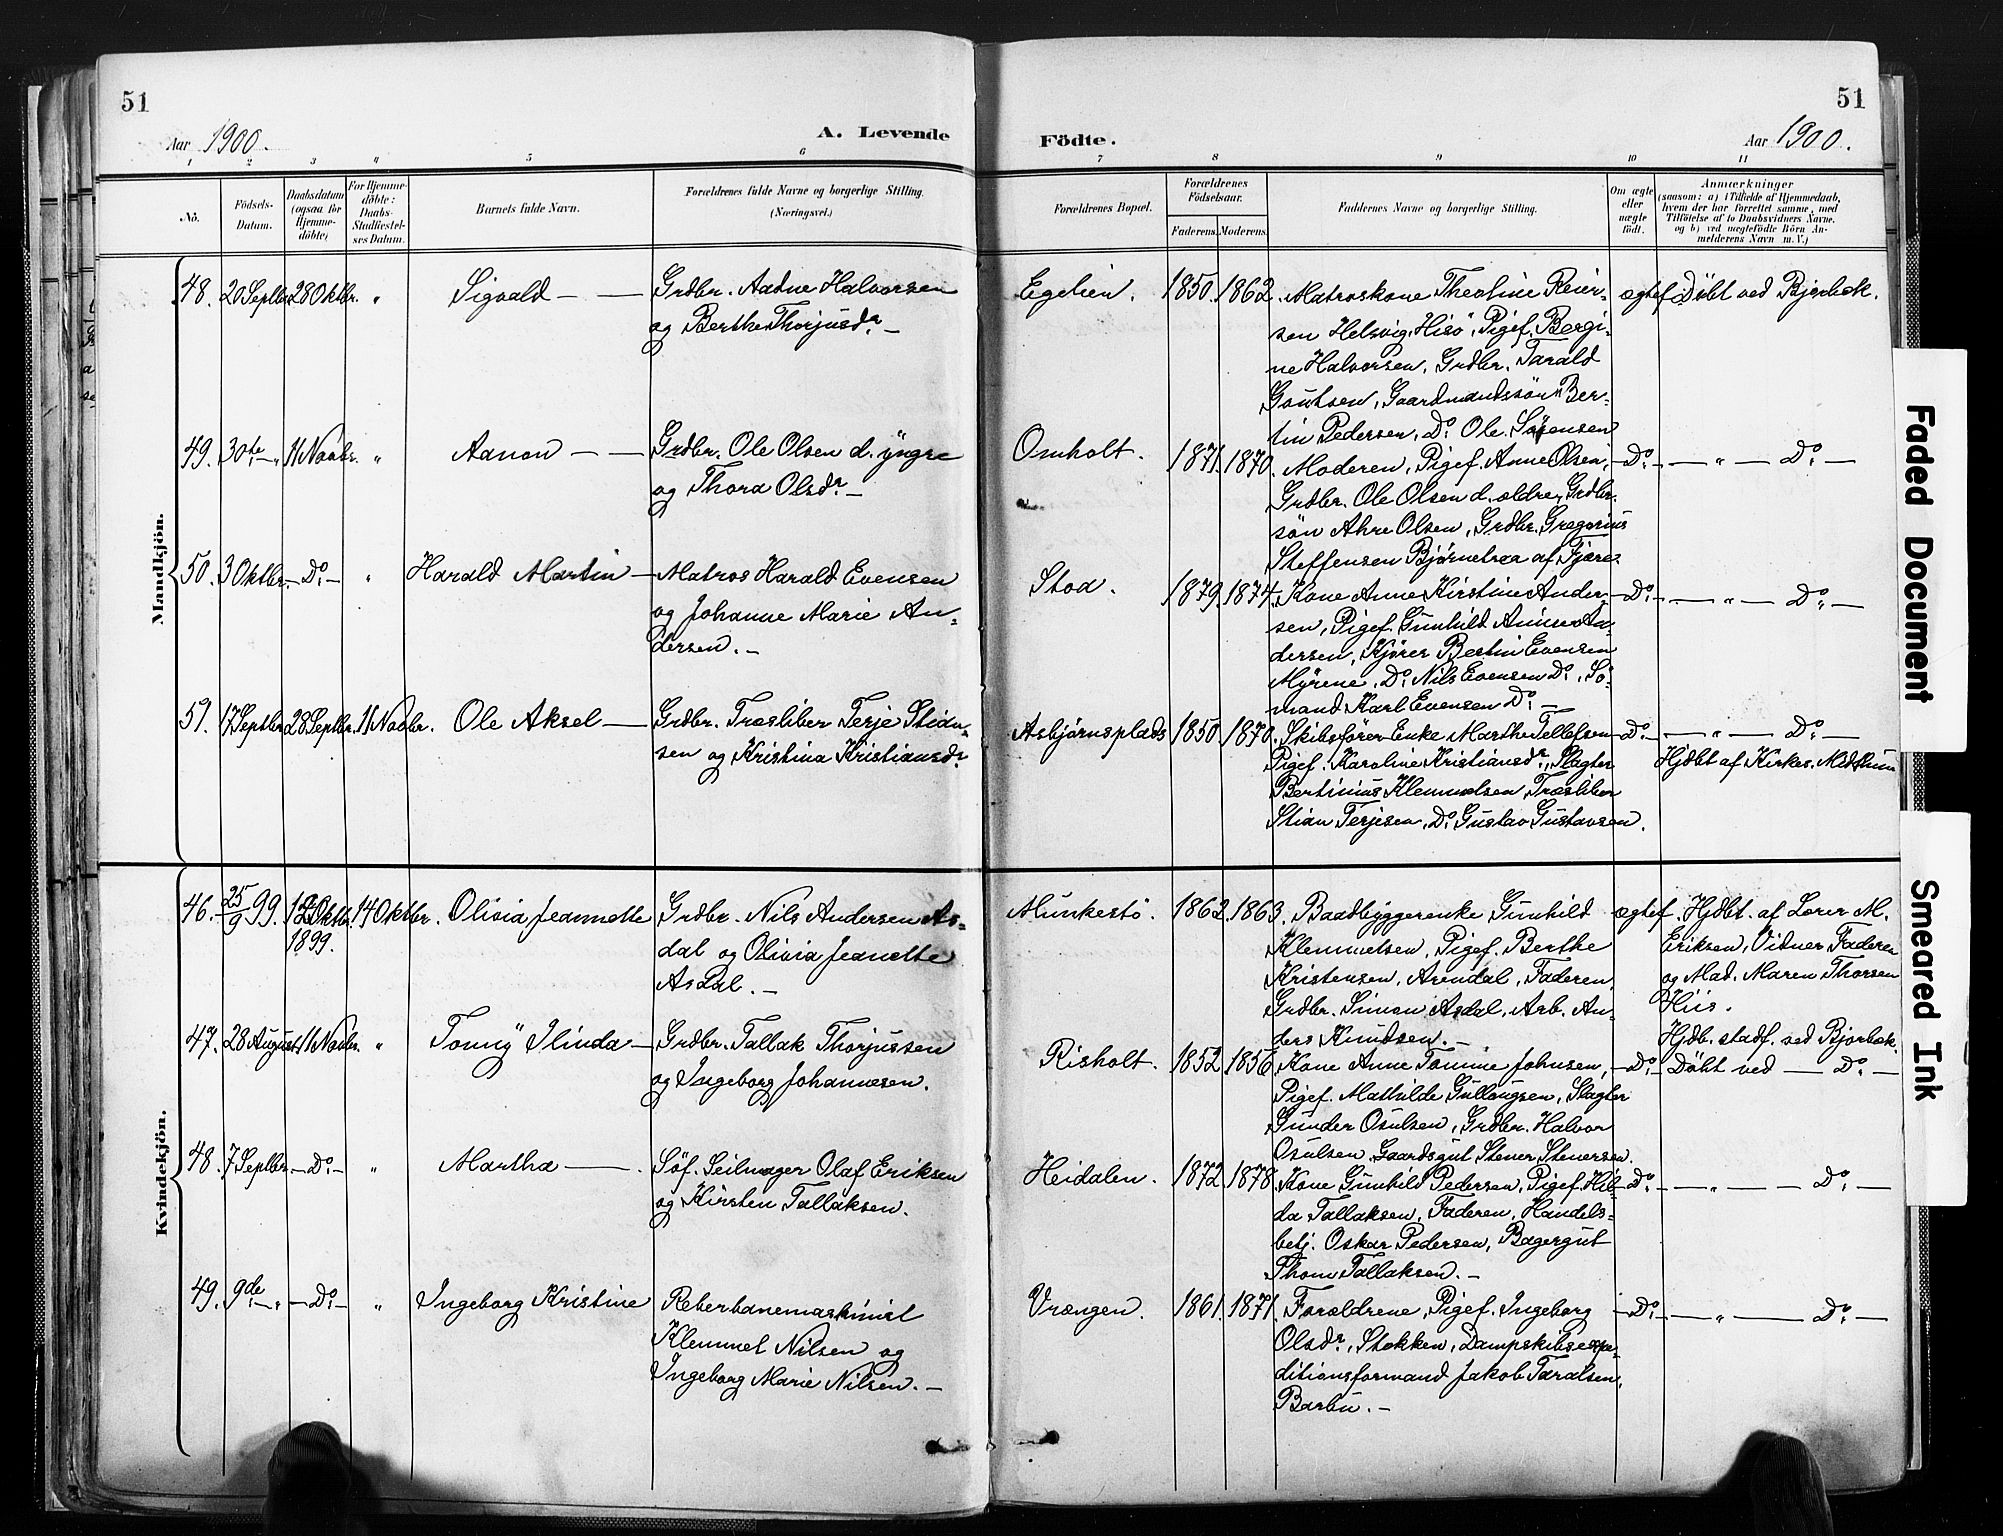 51
51
Aar 1900.
A. Levende
Födte.
Aar 1900.
1 2 3 " 5 6 7 8 9 10 11
Nò.
Födsels-
Datum.
Daabsdatum
(ogsaa for
Hjemme-
döbte)
For Hjemme-
döbte:
Daabs-
Stadfæstel-
ses Datum.
Barnets fulde Navn.
Forældrenes fulde Navne og borgerlige Stilling.
(Næringsvei.)
Forældrenes Bopæl.
Forældrenes
Födselsaar.
Faderens. Moderens.
Faddernes Navne og borgerlige Stilling.
Om ægte
eller
uægte
födt.
Anmærkninger
(saasom: a) i Tilfælde af Hjemmedaab,
hvem der har forrettet samme, med
Tilföielse af to Daabsvidners Navne,
og b) ved uægtefödte Börn An-
melderens Navn m. V.)
Mandkjön.
48. 20 Septbr. 28 Oktbr. " Sigvald — —
Grdbr. Aadne Halvorsen
og Berthe Thorjusdr. —
Egelien. 1850. 1862.
Matroskone Theoline Reier-
sen Helsvig, Hisö, Pigef. Bergi-
ne Halvorsen, Grdbr. Tarald
Gautsen, Gaardmandssön Ber-
tin Pedersen, Do. Ole Sörensen
ægtef. Döbt ved Bjorbæk.
49. 30te — " 11 Novbr. " Aanon — —
Grdbr. Ole Olsen d. yngre
og Thora Olsdr. —
Omholt. 1871. 1870.
Moderen, Pigef. Anne Olsen,
Grdbr. Ole Olsen d. ældre, Grdbr.
sön Ahre Olsen, Grdbr. Gregorius
Steffensen Bjørnetraa af Fjære.
— Do. — — " — Do. —
50. 3 Oktbr. — Do. — " Harald Martin —
Matros Harald Evensen
og Johanne Marie An-
dersen. —
Stoa. 1879. 1874.
Kone Anne Kirstine Ander-
sen, Pigef. Gunhild Aninea An-
dersen, Kjører Bertin Evensen
Myrene, Do. Nils Evensen Do., Sö-
mand Karl Evensen Do. —
— Do. — — " — Do. —
51. 17 Septbr. 28 Septbr. 11 Novbr. Ole Aksel —
Grdbr. Træsliber Terje Stian-
sen og Kristina Kristiansdr.
Asbjørnsplads 1850. 1870.
Skibsfører Enke Marthe Tellefsen
Pigef. Karoline Kristiansdr., Slagter
Bertinius Klemmetsen, Træsliber
Stian Terjesen, Do. Gustav Gustavsen.
— Do. — — " — Do. —
Hjdbt af Kirkes. Midthun
Kvindekjön.
46. 25/9 99. 12 Oktbr. 1899. 14 Oktbr. Olivia Jeannette
Grdbr. Nils Andersen As-
dal og Olivia Jeanette
Asdal. —
Munkestö. 1862. 1863.
Baadbyggerenke Gunhild
Klemmetsen, Pigef. Berthe
Kristensen, Arendal, Faderen,
Grdbr. Simon Asdal, Arb. An-
ders Knudsen. —
ægtef. Hjdbt. af Lærer M.
Eriksen, Vidner Faderen
og Mad. Maren Thorsen
Hiis.
Hjdb. stadf. ved Bjorbæk.
47. 28 August 11 Novbr. " Tonny Ilinda —
Grdbr. Tallak Thorjussen
og Ingeborg Johannesen.
Risholt. 1852. 1856.
Kone Anne Tomine Johnsen,
Pigef. Mathilde Gullaugsen, Slagter
Gunder Osulsen, Grdbr. Halvor
Osulsen, Gaardsgut Stener Stenersen.
— Do. — Döbt ved — Do. —
48. 7 Septbr. — Do. — " Martha —
Söf. Seilmager Olaf Eriksen
og Kirsten Tallaksen.
Heidalen. 1872. 1878.
Kone Gunhild Pedersen, Pigef. Hil-
da Tallaksen, Faderen, Handels-
betj. Oskar Pedersen, Bagergut
Thom Tallaksen. —
— Do. — — " — Do. —
49. 9de — " — Do. — " Ingeborg Kristine
Reberbanemaskinist
Klemmet Nilsen og
Ingeborg Marie Nilsen. —
Vrængen. 1861. 1871.
Forældrene, Pigef. Ingeborg
Olsdr., Stokken, Dampskibsexpe-
ditionsformand Jakob Taralsen,
Barbu. —
— Do. — — " — Do. —
Faded Document
Smeared Ink